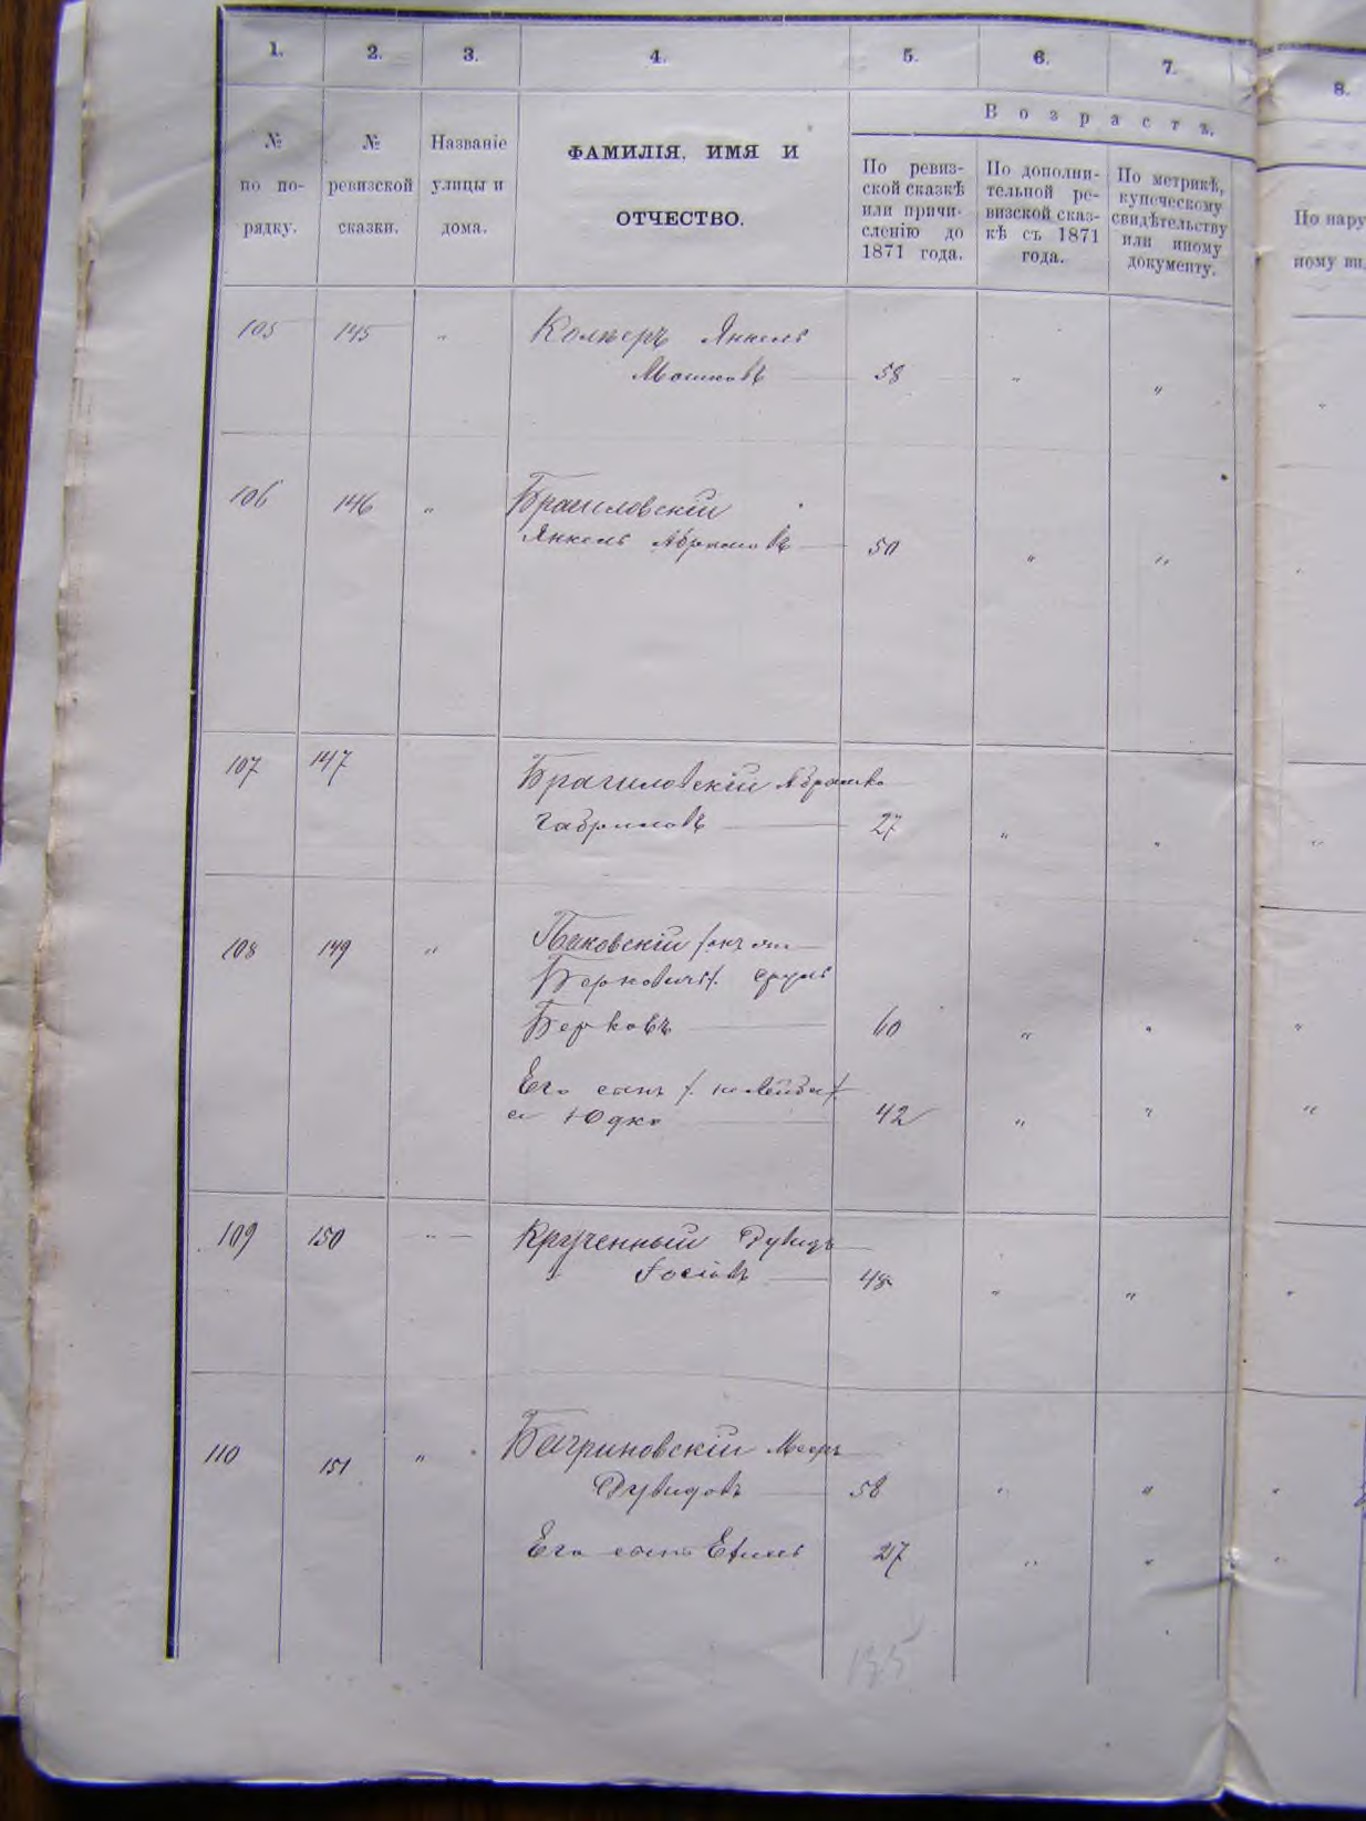 1. 2. 3. 4. 5. 6. 7. 8.
№ по по-рядку.
№ ревизской сказки.
Названіе улицы и дома.
ФАМИЛІЯ, ИМЯ И
ОТЧЕСТВО.
Возрастъ.
По ревиз-
ской сказкѣ
или причи-
сленію до
1871 года.
По дополни-
тельной ре-
визской сказ-
кѣ съ 1871
года.
По метрикѣ,
купеческому
свидѣтельству
или иному
документу.
По нару
ному ви
105 145 " Колперъ Янкель
Мошковъ 58 " " "
106 146 " Браиловскій
Янкель Абрамовъ 50 " "
107 147 Браиловскій Абрамко
Габриловъ 27 " " "
108 149 "
Берковичъ/. Сруль
Берковъ 60 " " "
Его сынъ
Юдко 42 " " "
109 150 " Крученный Дувидъ
Іосіовъ 48 " " "
110 151 " Багриновскій Мееръ
Дувидовъ 58 " " "
Его сынъ 27 " " "